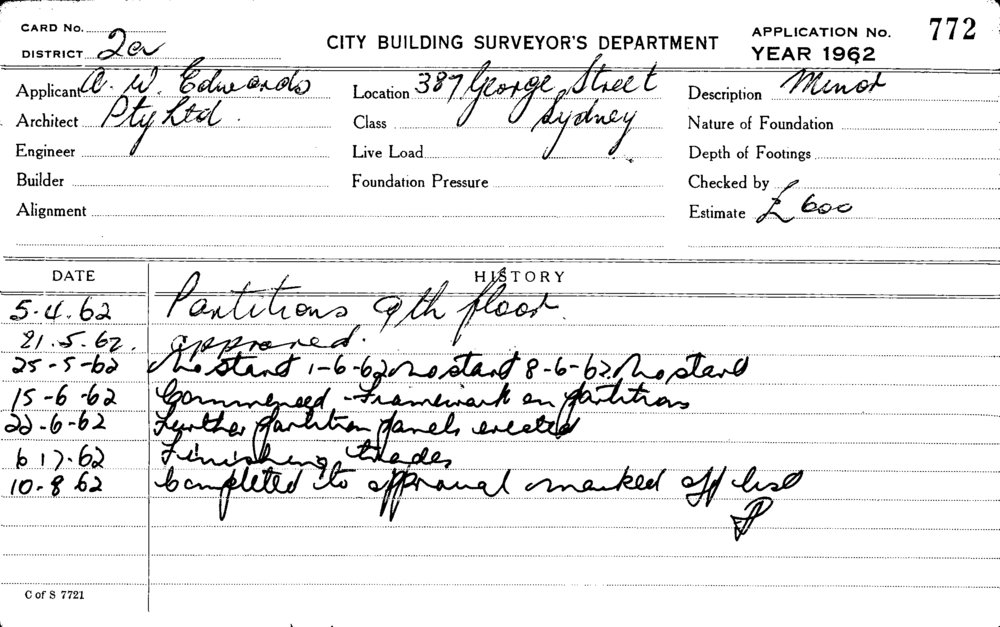 CARD No.
DISTRICT 2a
CITY BUILDING SURVEYOR'S DEPARTMENT
APPLICATION No. 772
YEAR 1962
Applicant A. W. Edwards
Location 387 George Street
Description Minor
Architect Pty Ltd.
Class Sydney
Nature of Foundation
Engineer
Live Load
Depth of Footings
Builder
Foundation Pressure
Checked by
Alignment
Estimate £ 600
DATE HISTORY
5.4.62 Partitions 9th floor.
21.5.62. approved.
25-5-62 No start 1-6-62 No start 8-6-62 No start
15-6-62 Commenced Framework on partitions
22-6-62 Further partition panels erected
6 17.62 Finishing trades
10.8 62 Completed to approval marked off list
C of S 7721